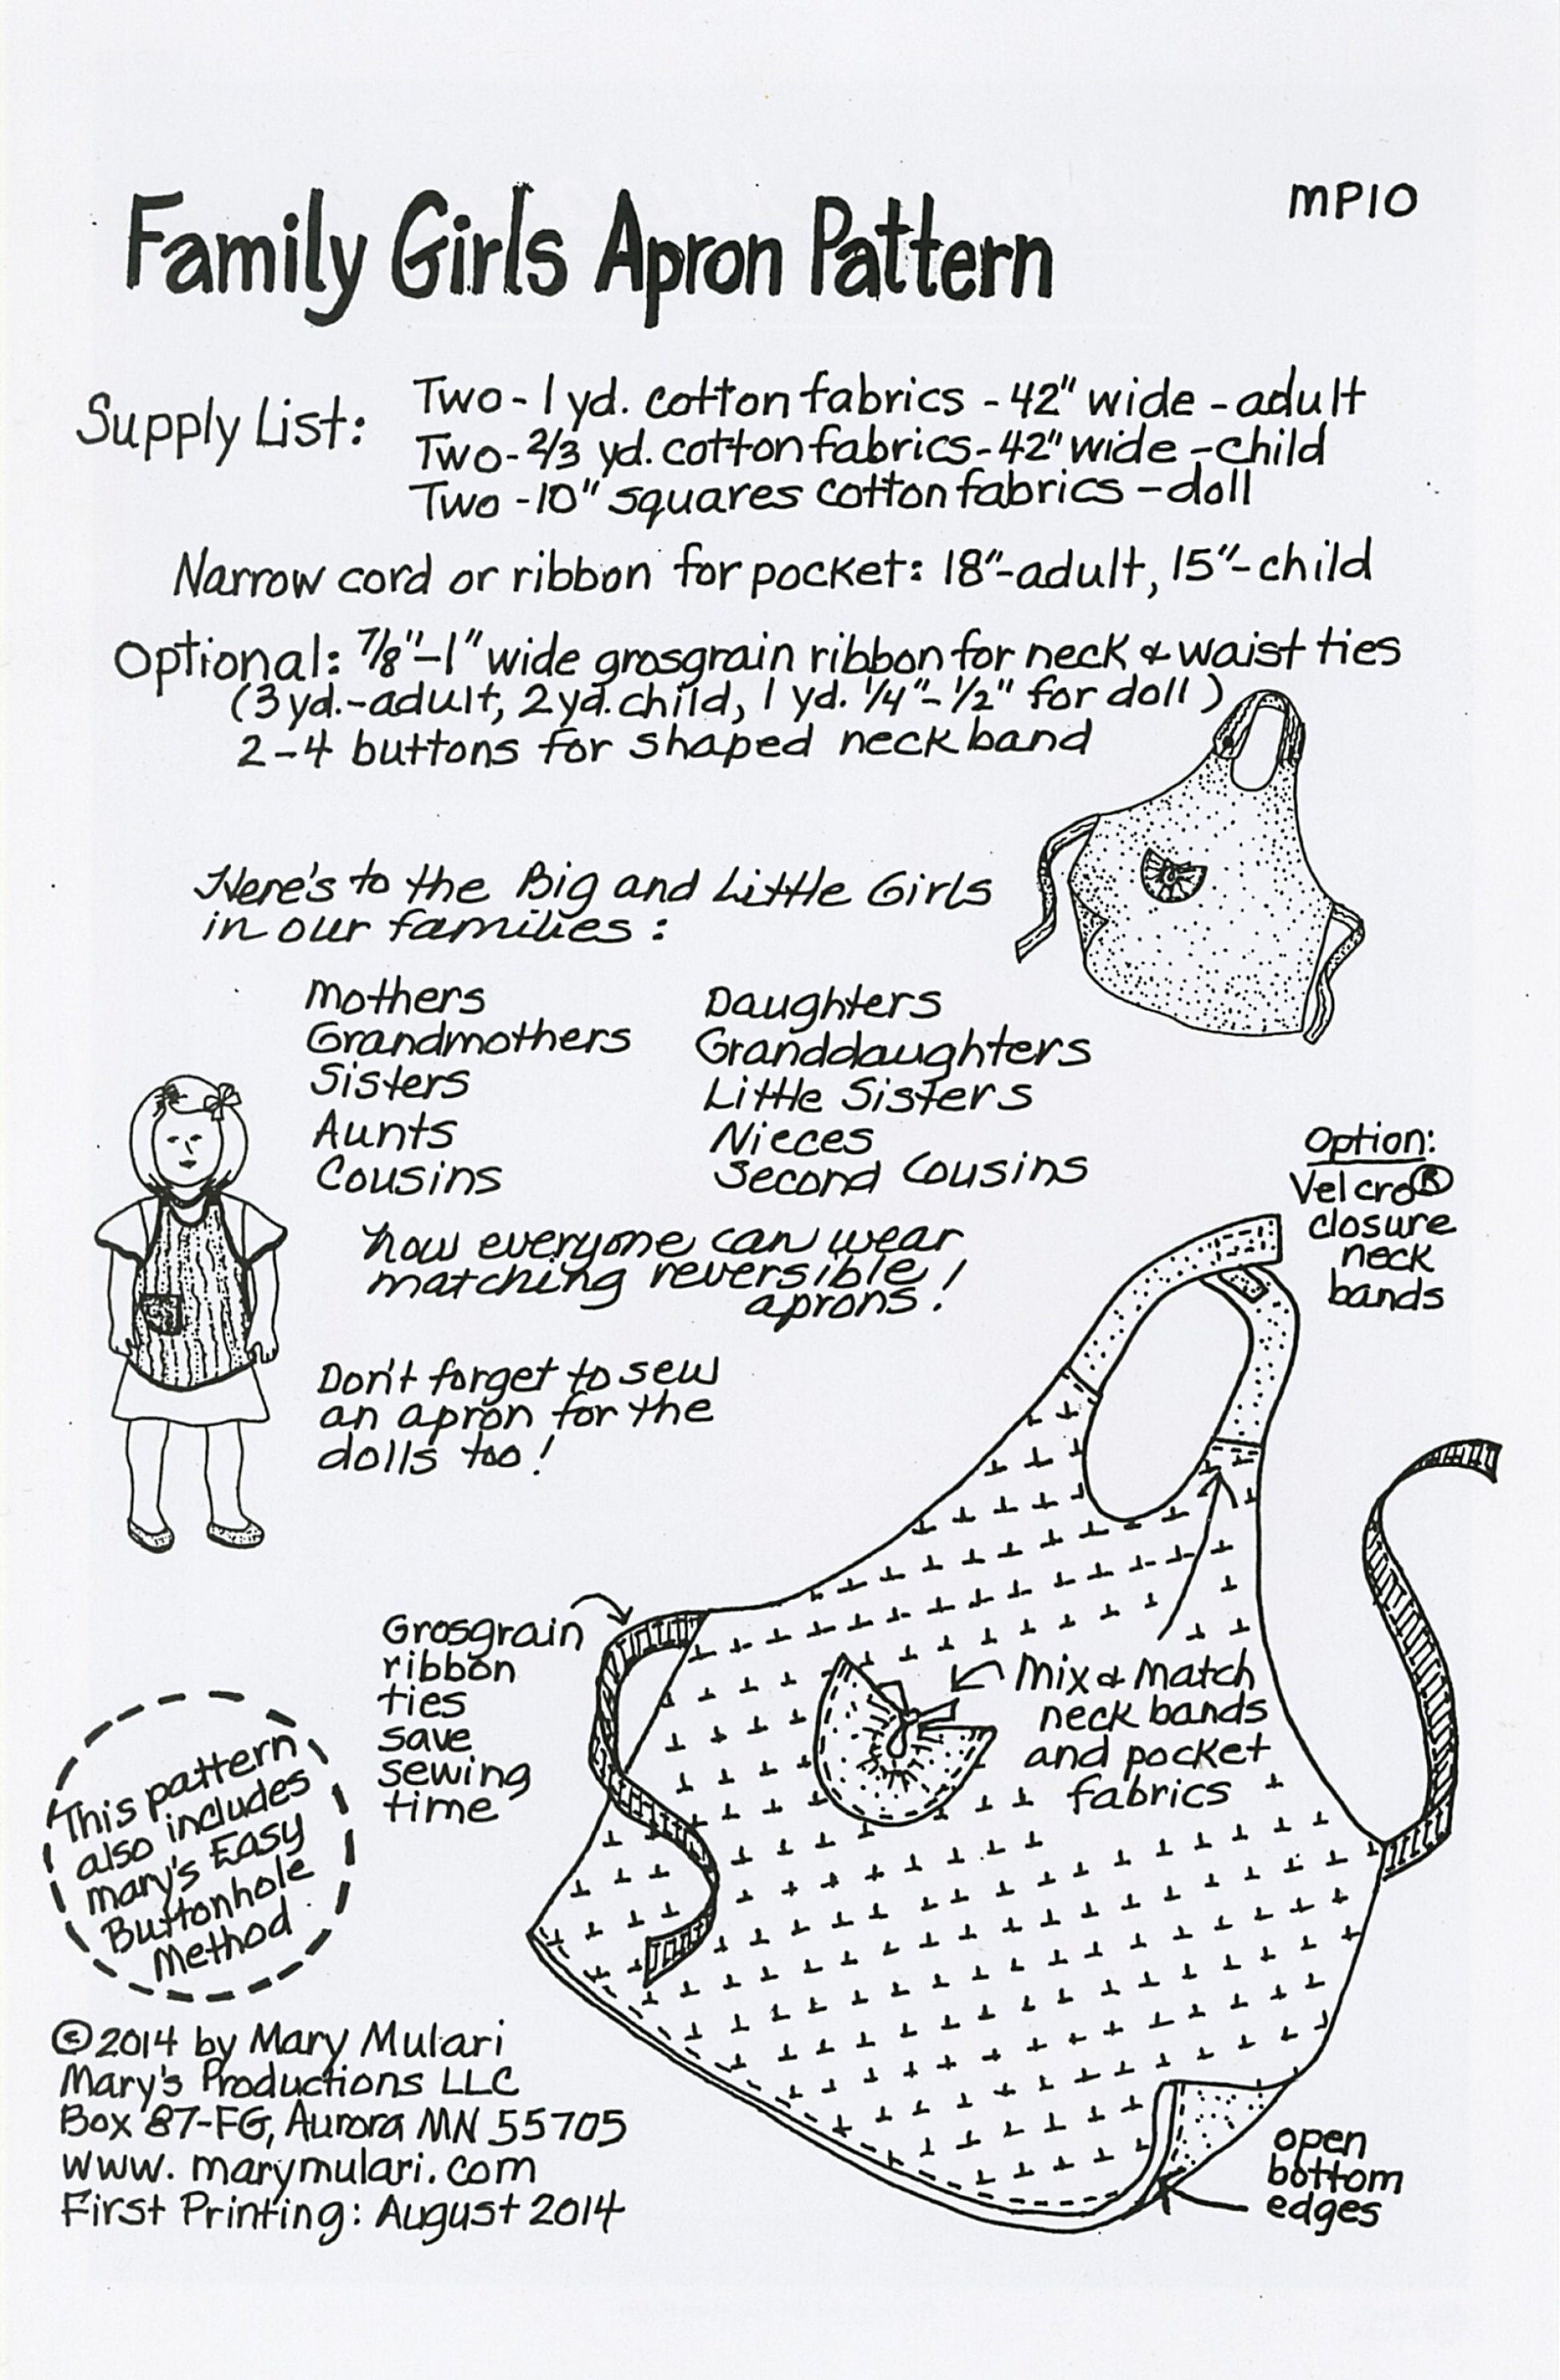 MP10
Family Girls Apron Pattern
Supply List:
Two - 1 yd. cotton fabrics - 42" wide - adult
Two - 2/3 yd. cotton fabrics - 42" wide - child
Two - 10" squares cotton fabrics - doll
Narrow cord or ribbon for pocket: 18"-adult, 15"-child
Optional: 7/8"-1" wide grosgrain ribbon for neck & waist ties
(3 yd.-adult, 2 yd. child, 1 yd. 1/4"-1/2" for doll)
2-4 buttons for shaped neck band
Here's to the Big and Little Girls
in our families:
Mothers
Grandmothers
Sisters
Aunts
Cousins
Daughters
Granddaughters
Little Sisters
Nieces
Second Cousins
Now everyone can wear
matching reversible
aprons!
Don't forget to sew
an apron for the
dolls too!
Option:
Velcro®
closure
neck
bands
Grosgrain
ribbon
ties
save
sewing
time
Mix & Match
neck bands
and pocket
fabrics
This pattern
also includes
Mary's Easy
Buttonhole
Method
©2014 by Mary Mulari
Mary's Productions LLC
Box 87-FG, Aurora MN 55705
www.marymulari.com
First Printing: August 2014
open
bottom
edges